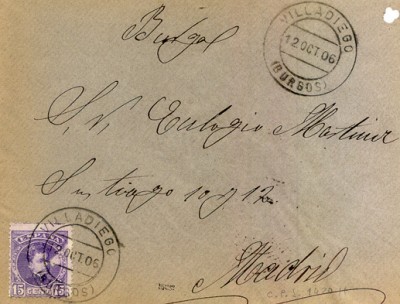 Burgos
VILLADIEGO
12 OCT 06
(BURGOS)
S. D. Eulogio Martinez
Santiago 10 y 12
Madrid
VILLADIEGO
12 OCT 06
ESPAÑA
15 CENT 15